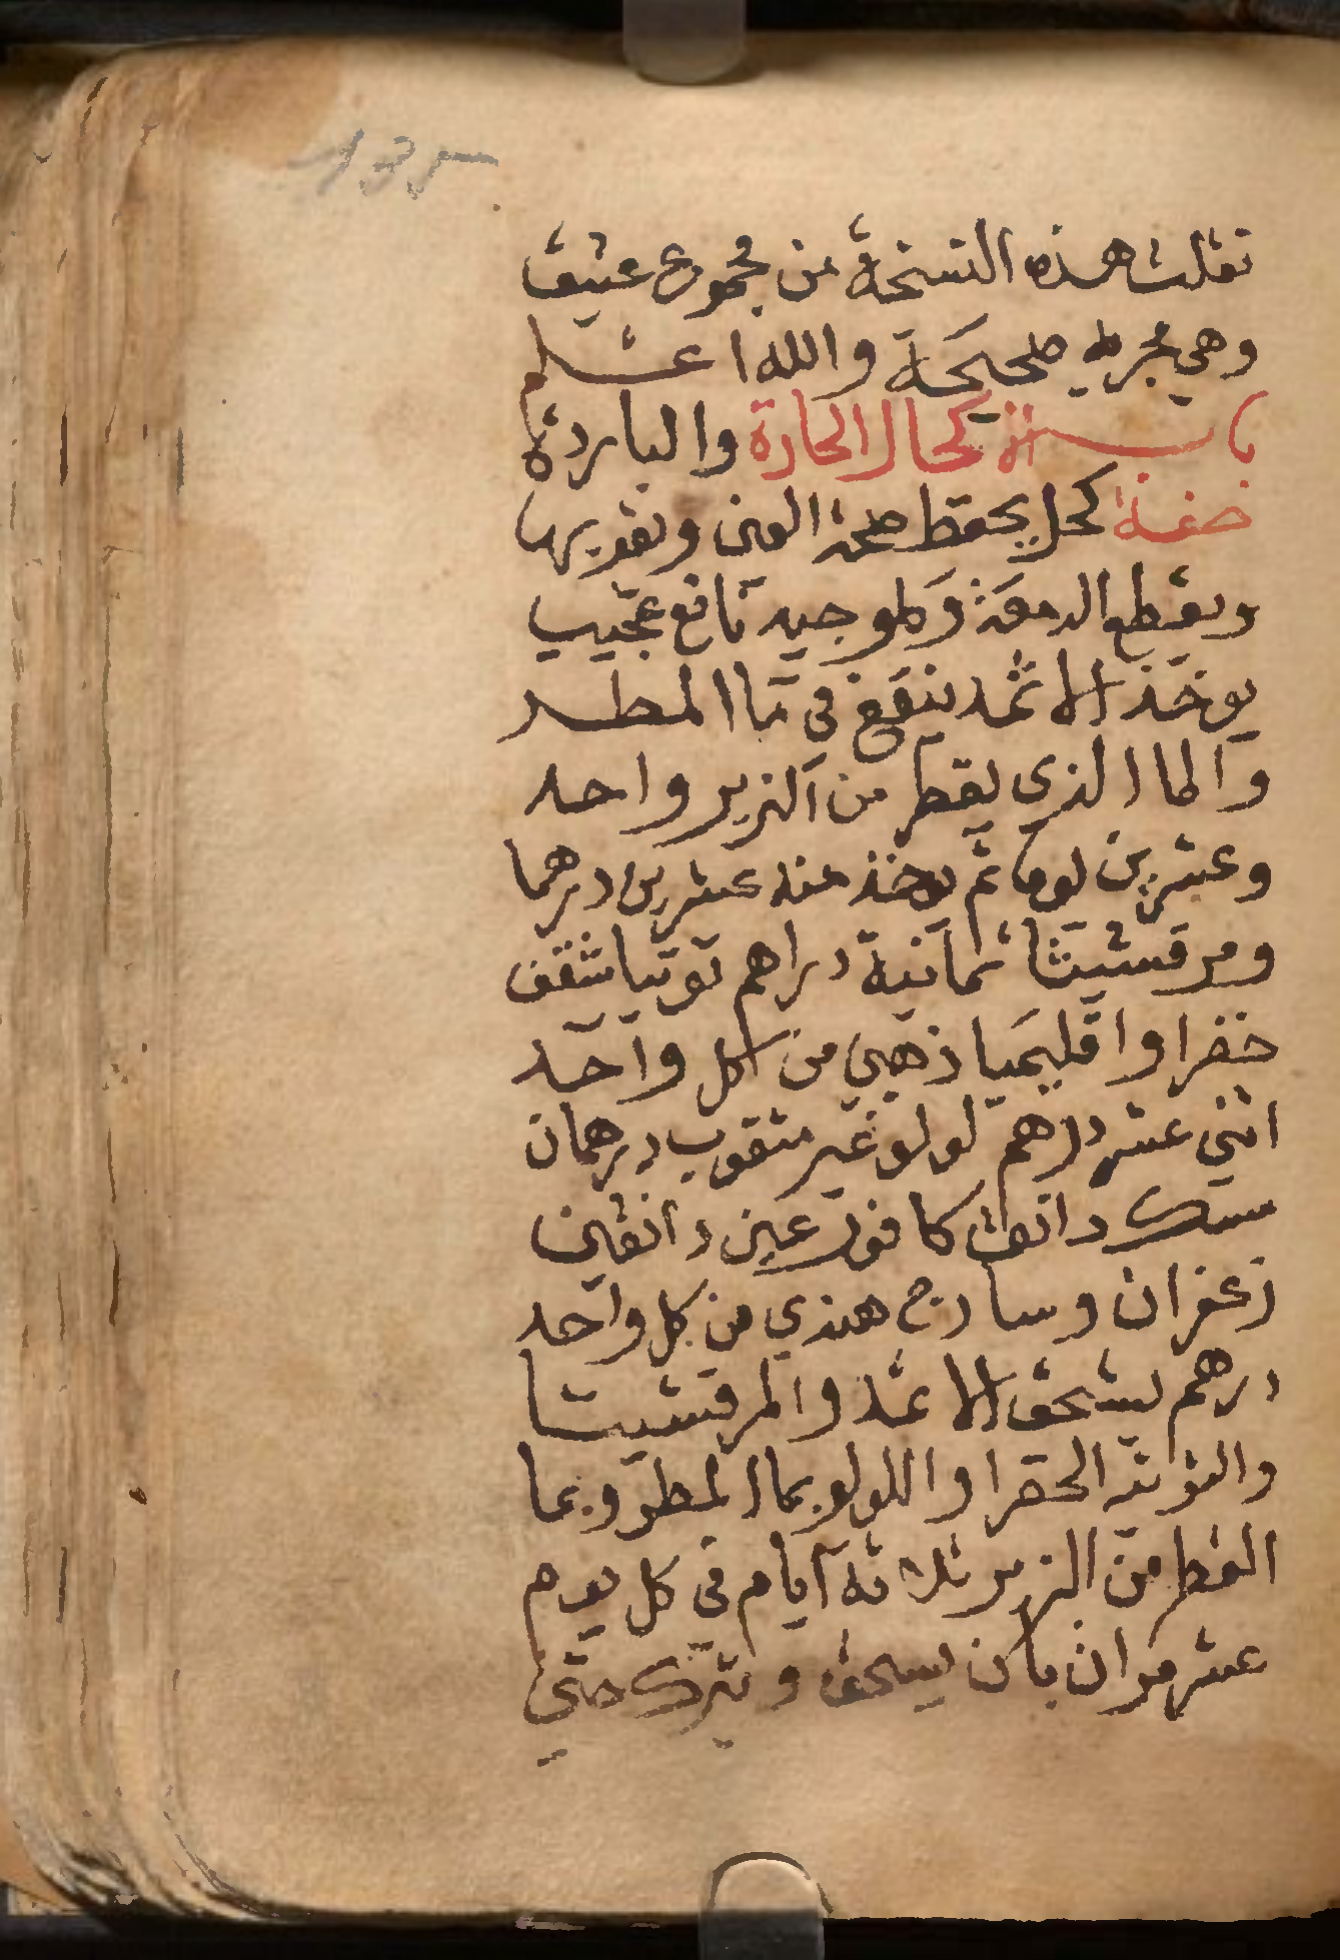 135
نقلت هذه النسخة من مجموع عتيق
وهي مجربه صحيحة والله اعلم
باب الاكحال الحارة والباردة
صفة كحل يحفظ صحة العين ويقويها
ويقطع الدمعة وهو جيد نافع عجيب
يوخذ الاثمد ينقع في ما المطر
والما الذي يقطر من الزير واحد
وعشرين يوما ثم يوخذ منه عشرين درهما
ومرقشيثا ثمانية دراهم توتيا شقف
خضرا واقليميا ذهبي من كل واحد
اثني عشر درهم لولو غير مثقوب درهمان
مسك دانق كافور عين دانقين
زعفران وسادج هندي من كل واحد
درهم يسحق الاثمد والمرقشيثا
والتوتيه الخضرا واللولو بما المطر وبما
القطر من الزير ثلاثة ايام في كل يوم
عشر مرات بان يسحق ويترك حتى